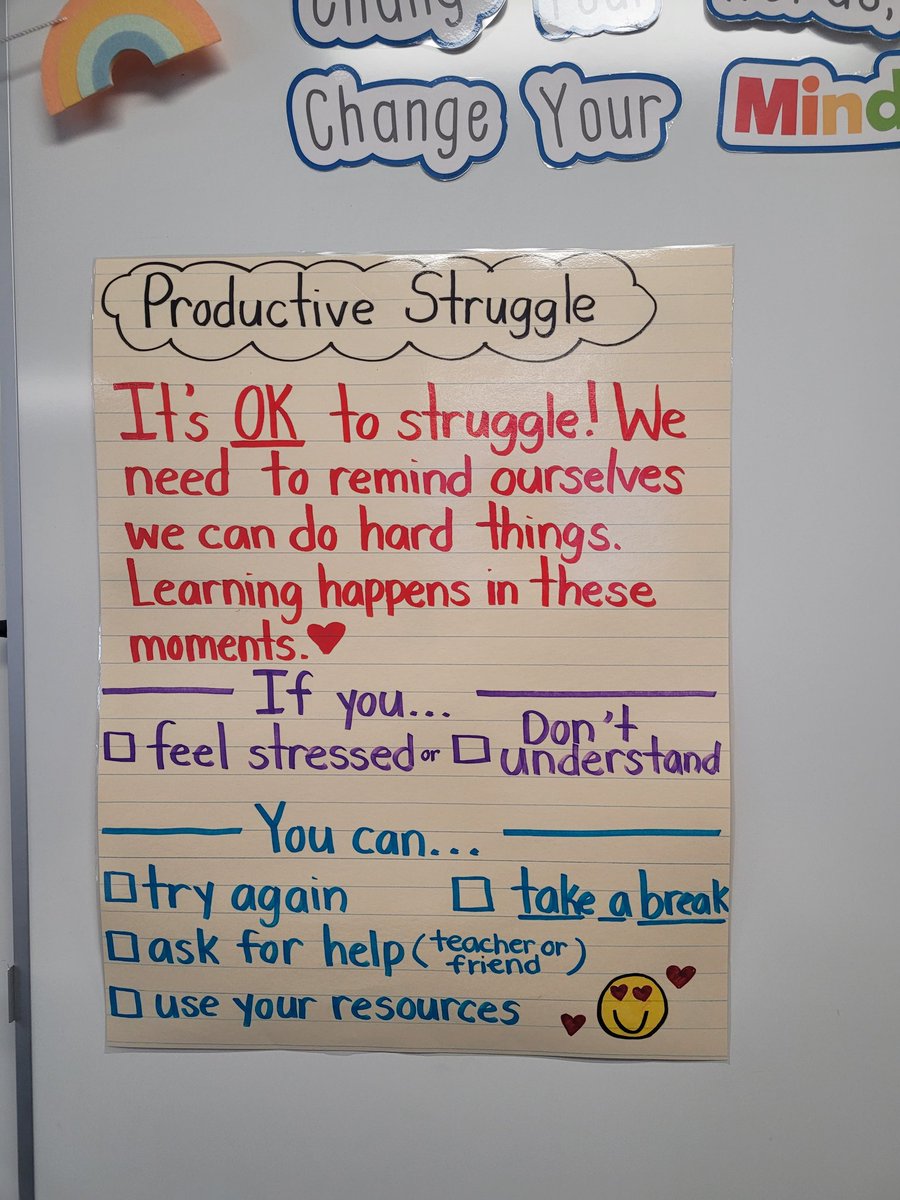 Change Your
Change Your Mind
Productive Struggle
It's OK to struggle! We
need to remind ourselves
we can do hard things.
Learning happens in these
moments.
If you...
☐ feel stressed or ☐ Don't understand
You can...
☐ try again ☐ take a break
☐ ask for help (teacher or friend)
☐ use your resources